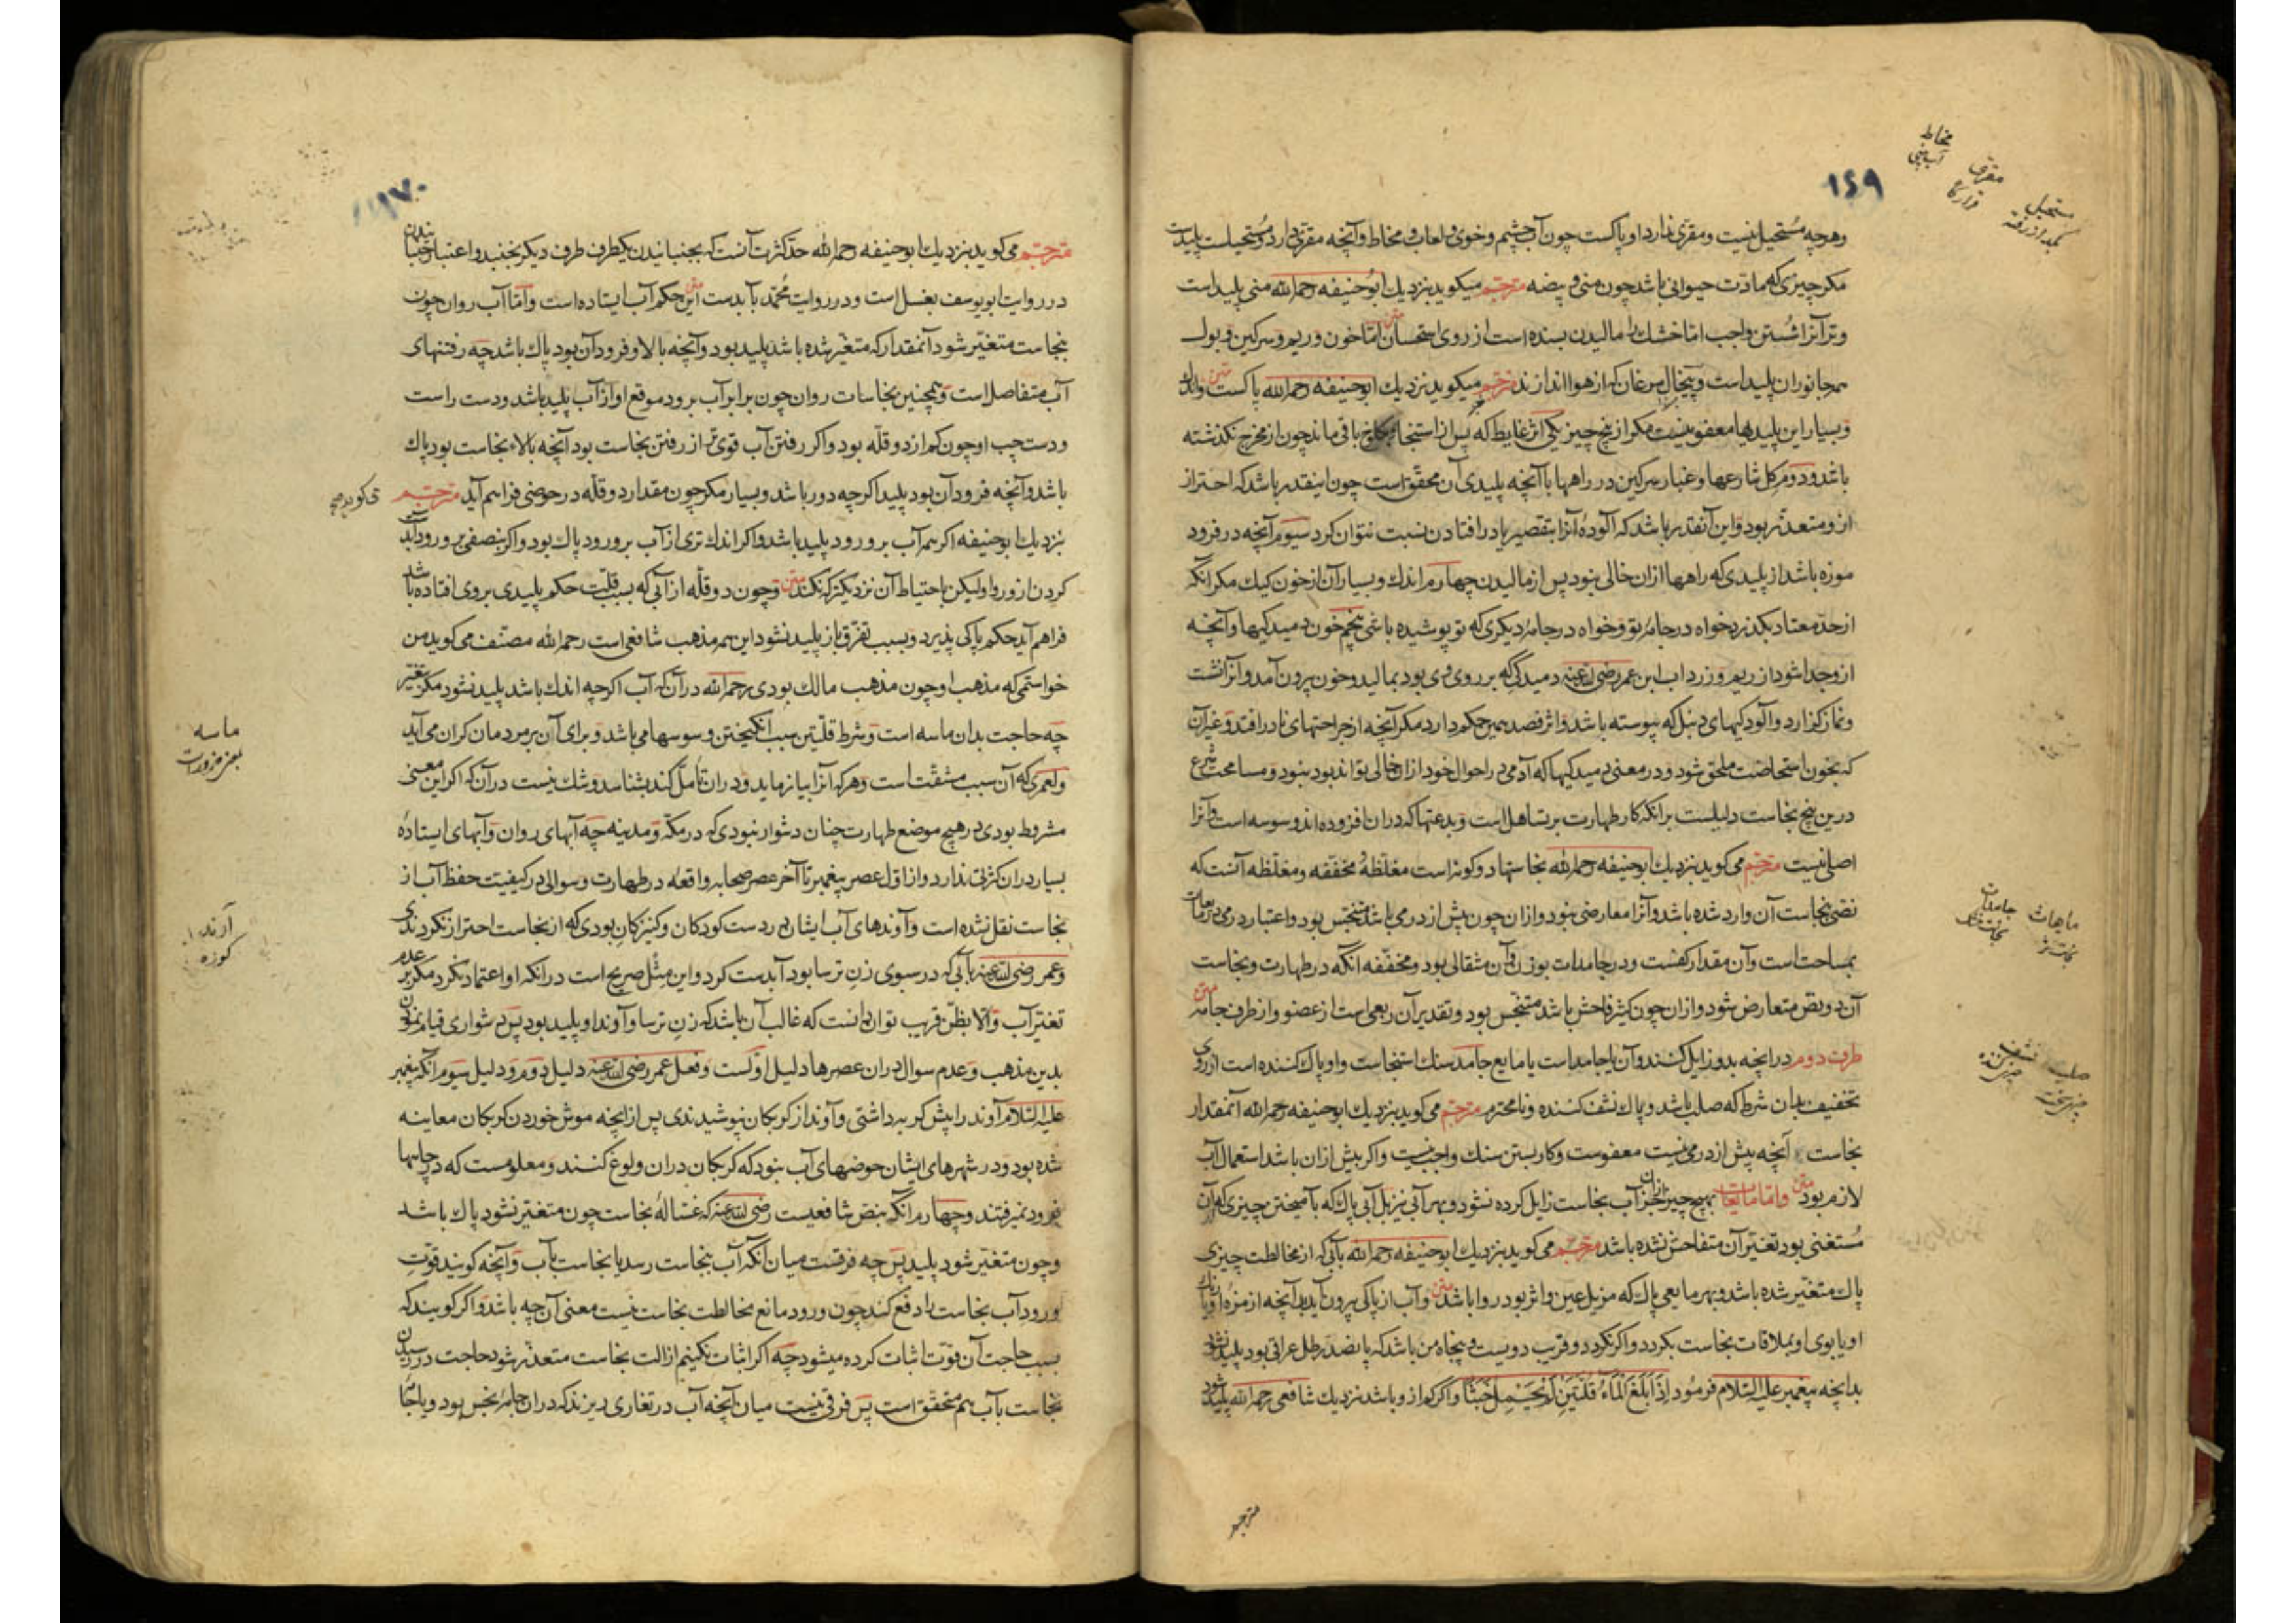 ۱۶۹
وهرچه مستحیل نیست و مقری ندارد او پاکست چون آب چشم و خوی و لعاب و مخاط و آنچه مقری دارد و مستحیلست پلیدست
مکر چیزی که مادت حیوانی باشد چون منی و بیضه مترجم میکوید بنزدیك ابوحنیفه رحمه الله منی پلید است
و تر آنرا شستن واجب اما خشك را مالیدن بسنده است از روی استحسان متن اما خون و ریم و سرکین و بول
همه جانوران پلید است و پیخال مرغان که از هوا اندازند مترجم میکوید بنزدیك ابوحنیفه رحمه الله پاکست متن واندك
و بسیار این پلیدیها معفو نیست مکر از پنج چیز یکی اثر غایط که پس از استنجا بکلوخ باقی ماند چون از مخرج نکذشته
باشد و دوم کل شارعها و غبار سرکین در راهها با آنچه پلیدی آن محقق است چون اینقدر باشد که احتراز
ازو متعذر بود و این آنقدر باشد که آلوده آنرا بتقصیر یا در افتادن نسبت نتوان کرد سیوم آنچه در فرود
موزه باشد از پلیدی که راهها ازان خالی نبود پس از مالیدن چهارم اندك و بسیار آن از خون کیك مکر انکه
از حد معتاد بکذرد خواه در جامه تو و خواه در جامه دیکری که تو پوشیده باشی پنجم خون دمیدکیها و آنچه
ازو جدا شود از ریم و زرداب ابن عمر رضی الله عنه دمیدکی که بر روی وی بود بمالید و خون برون آمد و آنرا نشست
و نماز کزارد و آلودکیهای دنبل که پیوسته باشد و اثر فصد همین حکم دارد مکر آنچه از جراحتهای نادر افتد و غیر آن
که بخون استحاضت ملحق شود و در معنی دمیدکیها که آدمی در احوال خود ازان خالی تواند بود نبود و مسامحت شرع
درین پنج نجاست دلیلست برانکه کار طهارت بر تساهل است و بدعتها که دران افزوده اند وسوسه است و آنرا
اصلی نیست مترجم می کوید بنزدیك ابوحنیفه رحمه الله نجاستها دو کونه است مغلظه و مخففه و مغلظه آنست که
نصی نجاست آن وارد شده باشد و آنرا معارضی نبود و ازان چون بیش از درمی باشد متنجس بود و اعتبار درمی در مایعات
بمساحت است و آن مقدار کفست و در جامدات بوزن و آن مثقالی بود و مخففه انکه در طهارت و نجاست
آن دو نص متعارض شود و ازان چون کثیر فاحش باشد متنجس بود و تقدیر آن ربعی است از عضو و از طرف جامه متن
طرف دوم در انچه بدو زایل کنند و آن یا جامد است یا مایع جامد سنك استنجاست و او پاك کننده است از روی
تخفیف بدان شرط که صلب باشد و پاك نشف کننده و نامحترم مترجم می کوید بنزدیك ابوحنیفه رحمه الله آنمقدار
نجاست آنچه بیش از درمی نیست معفوست و کار بستن سنك واجب نیست واکر بیش ازان باشد استعمال آب
لازم بود متن و اما مایعات بهیچ چیز ازان جز آب نجاست زایل کرده نشود و بهر آبی نیز بل آبی پاك که بآمیختن چیزی که ازان
مستغنی بود تغیر آن متفاحش نشده باشد مترجم می کوید بنزدیك ابوحنیفه رحمه الله بآبی که از مخالطت چیزی
پاك متغیر شده باشد و بهر مایعی پاك که مزیل عین و اثر بود روا باشد متن و آب از پاکی برون آید بدآنچه از مزه او یا رنك
او یا بوی او بملاقات نجاست بکردد واکر نکردد و قریب دویست و پنجاه من باشد که پانصد رطل عراقی بود پلید نشود
بدانچه پیغمبر علیه السلام فرمود اذا بلغ الماء قلتین لم یحمل خبثا واکر کم ازو باشد نزدیك شافعی رحمه الله پلید شود
مترجم
مخاط
آب بینی
مقری
قرارکاه
مستحیل
مایعات
جامدات
صلب
نشف
۱۷۰
مترجم می کوید بنزدیك ابوحنیفه رحمه الله حد کثرت آنست که بجنبانیدن یکطرف طرف دیکر بجنبد و اعتبار جنبانیدن
در روایت ابویوسف بغسل است و در روایت محمد بآبدست متن این حکم آب ایستاده است و اما آب روان چون
بنجاست متغیر شود آنمقدار که متغیر شده باشد پلید بود و آنچه بالا و فرود آن بود پاك باشد چه رفتنهای
آب متفاصل است و همچنین نجاسات روان چون برابر آب برود موقع او از آب پلید باشد و دست راست
و دست چپ او چون کم از دو قله بود واکر رفتن آب قوی تر از رفتن نجاست بود آنچه بالاء نجاست بود پاك
باشد و آنچه فرود آن بود پلید اکرچه دور باشد و بسیار مکر چون مقدار دو قله در حوضی فراهم آید مترجم
می کوید
بنزدیك ابوحنیفه اکر همه آب برو رود پلید باشد واکر اندك تری از آب برو رود پاك بود واکر بنصفی برو رود آبدست
کردن ازو روا ولیکن باحتیاط آن نزدیکتر که نکند متن و چون دو قله از آبی که بسبب قلت حکم پلیدی بروی افتاده باشد
فراهم آید حکم پاکی پذیرد و بسبب تفرق باز پلید نشود این همه مذهب شافعی است رحمه الله مصنف می کوید من
خواستمی که مذهب او چون مذهب مالك بودی رحمه الله در آن که آب اکرچه اندك باشد پلید نشود مکر بتغیر
چه حاجت بدان ماسه است و شرط قلتین سبب انکیختن وسوسها می باشد و برای آن بر مردمان کران می آید
و لعمری که آن سبب مشقت است و هر که آنرا بیازماید و دران تأمل کند بشناسد و شك نیست در آن که اکر این معنی
مشروط بودی در هیچ موضع طهارت چنان دشوار نبودی که در مکه و مدینه چه آبهای روان و آبهای ایستاده
بسیار دران کثرتی ندارد و از اول عصر پیغمبر تا آخر عصر صحابه واقعه در طهارت و سوالی در کیفیت حفظ آب از
نجاست نقل نشده است و آوندهای آب ایشان در دست کودکان و کنیزکان بودی که از نجاست احتراز نکردندی
و عمر رضی الله عنه بآبی که در سبوی زن ترسا بود آبدست کرد و این مثل صریح است در انکه او اعتماد نکرد مکر بر عدم
تغیر آب و الا بظن قریب توان دانست که غالب آن باشد که زن ترسا و آوند او پلید بود پس دشواری قیام نمودن
بدین مذهب و عدم سوال دران عصرها دلیل اولست و فعل عمر رضی الله عنه دلیل دوم و دلیل سیوم انکه پیغمبر
علیه السلام آوند را پیش کربه داشتی و آوند از کربکان نپوشیدندی پس ازانچه موش خوردن کربکان معاینه
شده بود و در شهرهای ایشان حوضهای آب نبود که کربکان دران ولوغ کنند و معلومست که در چاهها
فرود نمیرفتند و چهارم انکه بنص شافعیست رضی الله عنه که غساله نجاست چون متغیر نشود پاك باشد
و چون متغیر شود پلید پس چه فرقست میان آنکه آب بنجاست رسد یا نجاست بآب و آنچه کویند قوت
ورود آب نجاست را دفع کند چون ورود مانع مخالطت نجاست نیست معنی آن چه باشد واکر کویند که
بسبب حاجت آن قوت اثبات کرده میشود چه اکر اثبات نکنیم ازالت نجاست متعذر شود حاجت در رسیدن
نجاست بآب هم متحقق است پس فرقی نیست میان آنچه آب در تغاری ریزند که دران جامه نجس بود و یا جامه
ماسه
آوند
کوزه